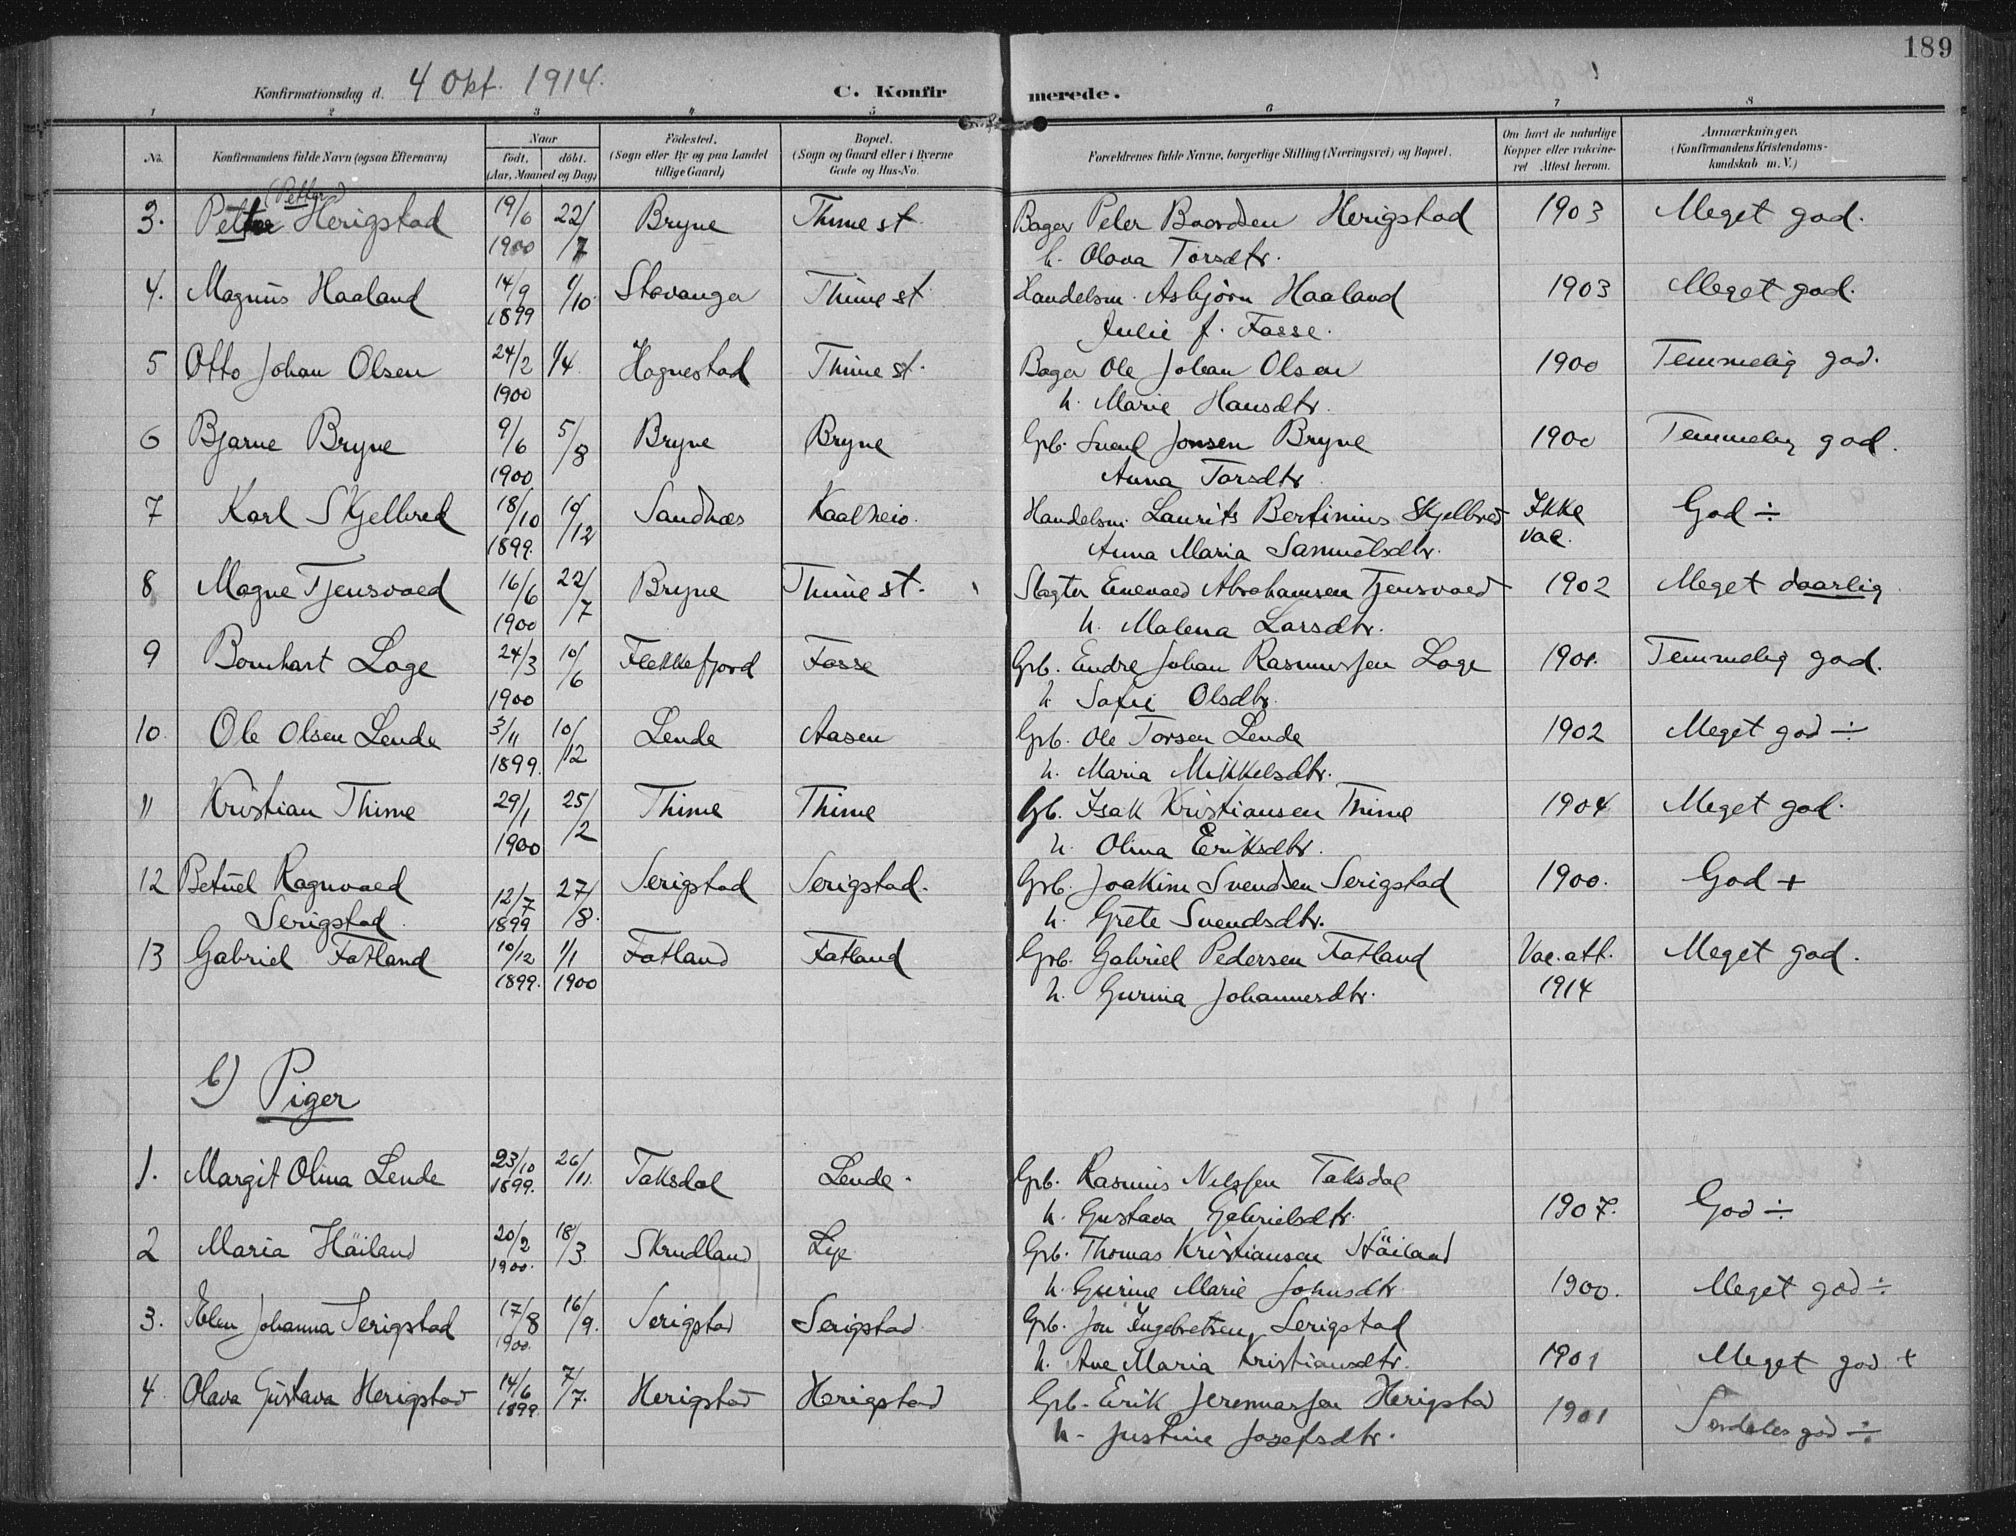 189
Konfirmationsdag d. 4 Okt. 1914.
C. Konfir merede.
1 2 3 4 5 6 7 8
No. Konfirmandens fulde Navn (ogsaa Efternavn) Naar født, døbt. (Aar, Maaned og Dag) Fødested. (Sogn eller By og paa Landet tillige Gaard) Bopæl. (Sogn og Gaard eller i Byerne Gade og Hus-No. Forældrenes fulde Navne, borgerlige Stilling (Næringsvei) og Bopæl. Om havt de naturlige Kopper eller vakcineret Attest herom. Anmærkninger. (Konfirmandens Kristendomskundskab m. V.)
(Petter)
3. Petter Herigstad 19/6 22/7 Bryne Thime st. Bager Peter Baardsen Herigstad 1903 Meget god.
1900 h. Olava Torsdtr.
4. Magnus Haaland 14/9 1/10 Stavanger Thime st. Handelsm. Asbjørn Haaland 1903 Meget god.
1899 Julie f. Fosse.
5 Otto Johan Olsen 24/2 1/4 Hognestad Thime st. Bager Ole Johan Olsen 1900 Temmelig god.
1900 h. Marie Hansdtr.
6 Bjarne Bryne 9/6 5/8 Bryne Bryne Gpb. Svend Jonsen Bryne 1900 Temmelig god.
1900 Anna Torsdtr.
7 Karl Skjelbred 18/10 10/12 Sandnæs Kaalheio. Handelsm. Laurits Bertinius Skjelbred Ikke God ÷
1899. Anna Maria Samuelsdtr. vac.
8 Magne Tjensvold 16/6 22/7 Bryne Thime st. Slagter Enevald Abrahamsen Tjensvold 1902 Meget daarlig
1900 h. Malena Larsdtr.
9 Bernhart Loge 24/3 10/6 Flekkefjord Fosse Gpb. Endre Johan Rasmussen Loge 1901. Temmelig god.
1900 h. Sofie Olsdtr.
10. Ole Olsen Lende 3/11 10/12 Lende Aasen Gpb. Ole Torsen Lende 1902 Meget god ÷
1899. h. Maria Mikkelsdtr.
11 Kristian Thime 29/1 25/2 Thime Thime Gb. Isak Kristiansen Thime 1904 Meget god.
1900 h. Olina Eriksdtr.
12 Betuel Ragnvald 12/7 27/8. Serigstad Serigstad. Gpb. Joakim Svendsen Serigstad 1900. God +
Serigstad. 1899 h. Grete Svendsdtr.
13 Gabriel Fotland 10/12 1/1 Fotland Fotland Gpb. Gabriel Pedersen Fotland Vac. att. Meget god.
1899. 1900 h. Gurina Johannesdtr. 1914
b) Piger
1. Margit Olina Lende 23/10 26/11. Taksdal Lende. Gpb. Rasmus Nilssen Taksdal
1899. h. Gustava Gabrielsdtr. 1907. God ÷
2 Maria Häiland 20/2 18/3. Skrudland Lye Gpb. Thomas Kristiansen Häiland
1900. h. Gurine Marie Johnsdtr. 1900. Meget god ÷
3. Elen Johanna Serigstad 17/8 16/9. Serigstad Serigstad Gpb. Jon Ingebretsen Serigstad
1900. h. Ane Maria Kristiansdtr. 1901 Meget god +
4. Olava Gustava Herigstad 14/6 7/7. Herigstad Herigstad Gpb. Erik Jeremiassen Herigstad
1899. h. Justine Josefsdtr. 1901 Særdeles god ÷